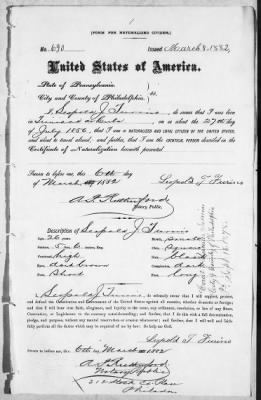 [FORM FOR NATURALIZED CITIZEN.]
No. 690 Issued March 8, 1882
United States of America.
State of Pennsylvania.
City and County of Philadelphia. } ss.
I, Leopold J. do swear that I was born
at Trinidad de Cuba on about the 27th day
of July 1856, that I am a NATURALIZED AND LOYAL CITIZEN OF THE UNITED STATES,
and about to travel abroad; and further, that I am the IDENTICAL PERSON described in the
Certificate of Naturalization herewith presented.
Sworn to before me, this 6th day
of March 1882
Leopold T.
A. P. Rutherford
Notary Public.
Description of Leopold J.
Age, 26 years
Stature, 5 ft 6 inches, Eng.
Forehead, high
Eyes, dark brown
Nose, Short
small
Chin, square
Hair, black
Complexion, dark
Face, long
I, Leopold J. do solemnly swear that I will support, protect,
and defend the Constitution and Government of the United States against all enemies, whether domestic or foreign;
and that I will bear true faith, allegiance, and loyalty to the same, any ordinance, resolution, or law of any State,
Convention, or Legislature to the contrary notwithstanding; and further, that I do this with a full determination,
pledge, and purpose, without any mental reservation or evasion whatsoever; and further, that I will well and faithfully
perform all the duties which may be required of me by law. So help me God.
Leopold T.
Sworn to before me, this 6th March 1882
A. P. Rutherford
Notary Public